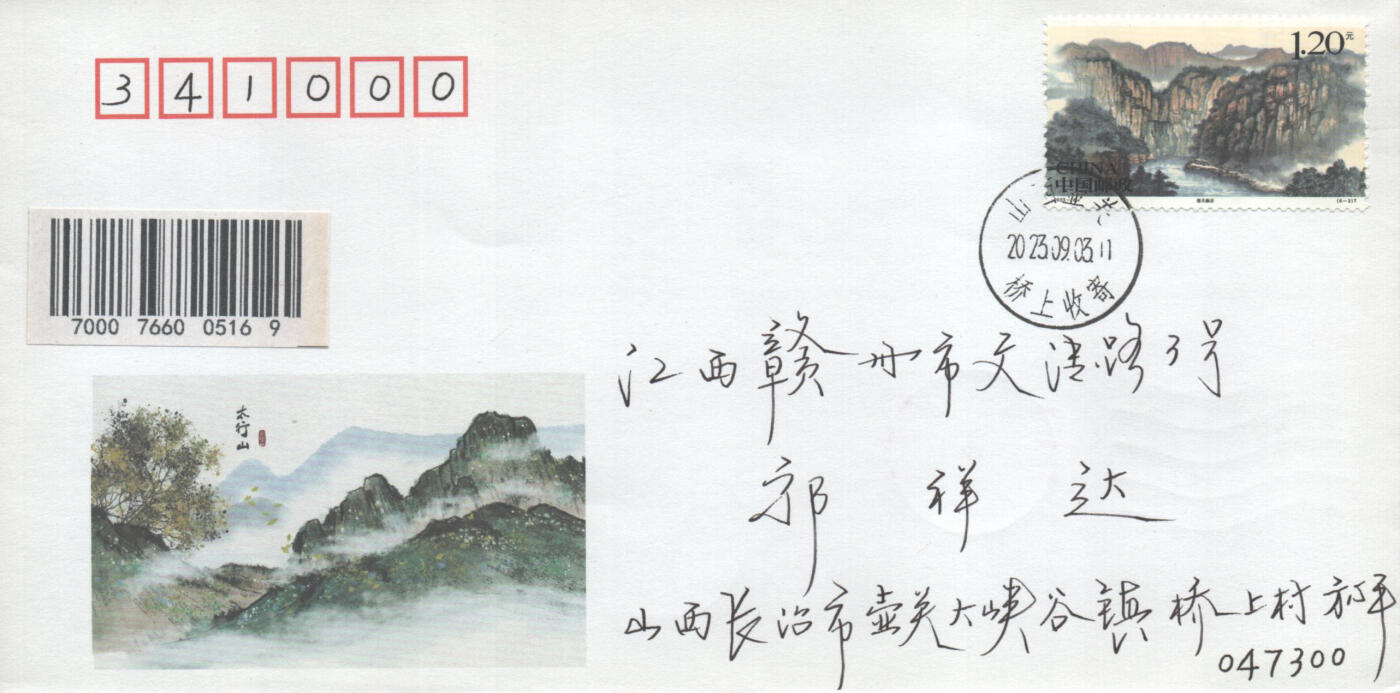 341000
1.20元
CHINA
中国邮政
(6-3)T
2023.09.03.11
桥上收寄
7000 7660 0516 9
太行山
江西赣州市文清路3号
郭祥达
山西长治市壶关大峡谷镇桥上村
047300